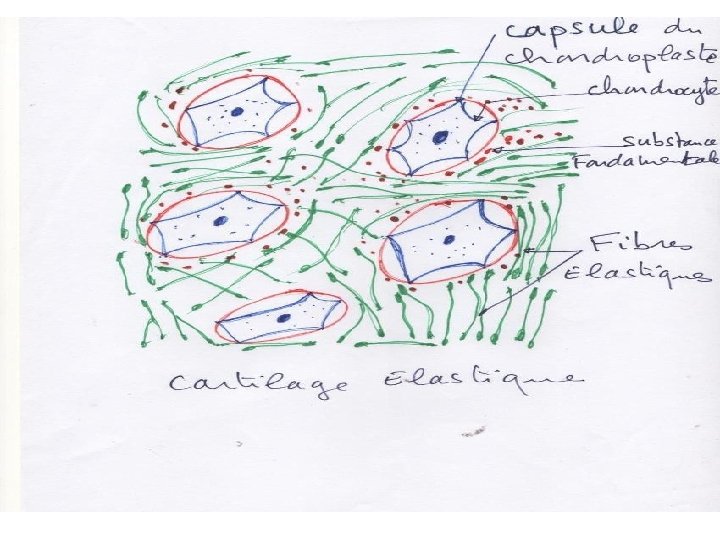 capsule du
chondroplaste
chondrocyte
substance
Fondamentale
Fibres
Elastiques
Cartilage Elastique